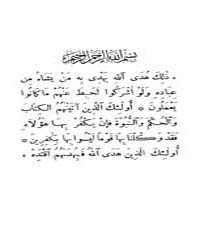 بسم الله الرحمن الرحيم
* ذلك هدى الله يهدى به من يشاء من
عباده ولو أشركوا لحبط عنهم ما كانوا
يعملون * أولئك الذين آتينهم الكتاب
والحكم والنبوة فإن يكفر بها هؤلاء
فقد وكلنا بها قوما ليسوا بها بكفرين *
أولئك الذين هدى الله فبهدىهم اقتده *